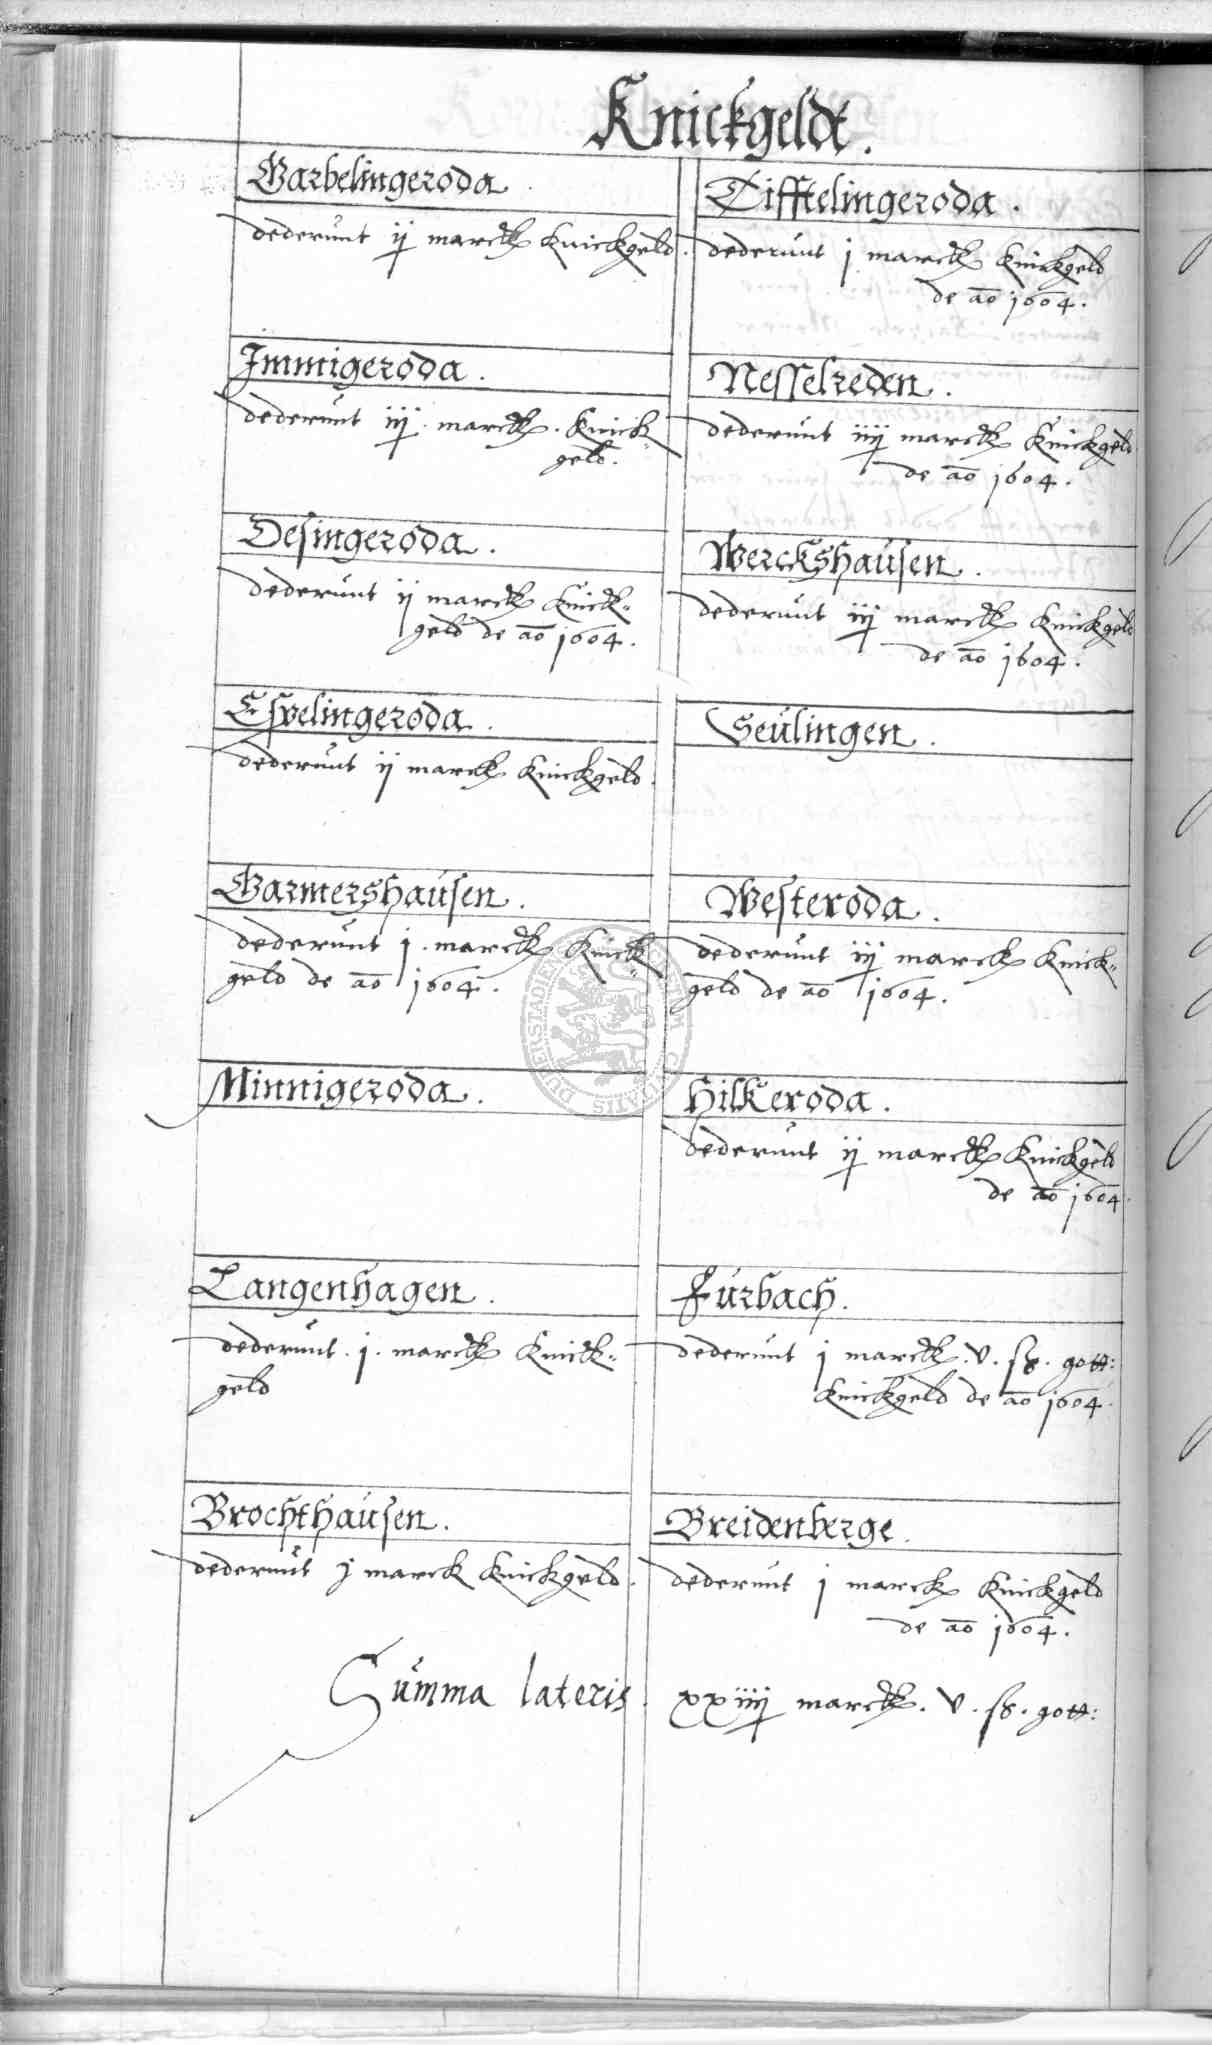 Knickgeldt.
Garbelingeroda.
dederunt ij marck Knickgeld.
Immigeroda.
dederunt iij. marck. Knick-
geld.
Desingeroda.
dederunt ij marck Knick-
geld de ao 1604.
Esplingeroda.
dederunt ij marck Knickgeld.
Garmershausen.
dederunt j. marck Knick-
geld de ao 1604.
Minnigeroda.
Langenhagen.
dederunt. j. marck Knick-
geld
Brochthausen.
dederunt j marck Knickgeld.
Tifftelingeroda.
dederunt j marck Knickgeld
de ao 1604.
Nesselreden.
dederunt iiij marck Knickgeld
de ao 1604.
Werckshausen.
dederunt iij marck Knickgeld
de ao 1604.
Seulingen.
Westeroda.
dederunt iij marck Knick-
geld de ao 1604.
Hilkeroda.
dederunt ij marck Knickgeld
de ao 1604.
Furbach.
dederunt j marck. v. ß. gott:
Knickgeld de ao 1604.
Breidenberge.
dederunt j marck Knickgeld
de ao 1604.
Summa lateris. xxiiij marck. v. ß. gott:
DUDERSTADENSIS